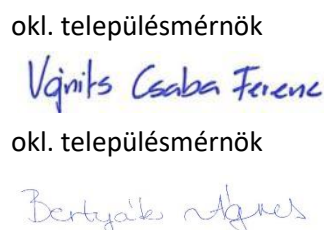 okl. településmérnök
Vojnits Csaba Ferenc
okl. településmérnök
Bertyák Ágnes